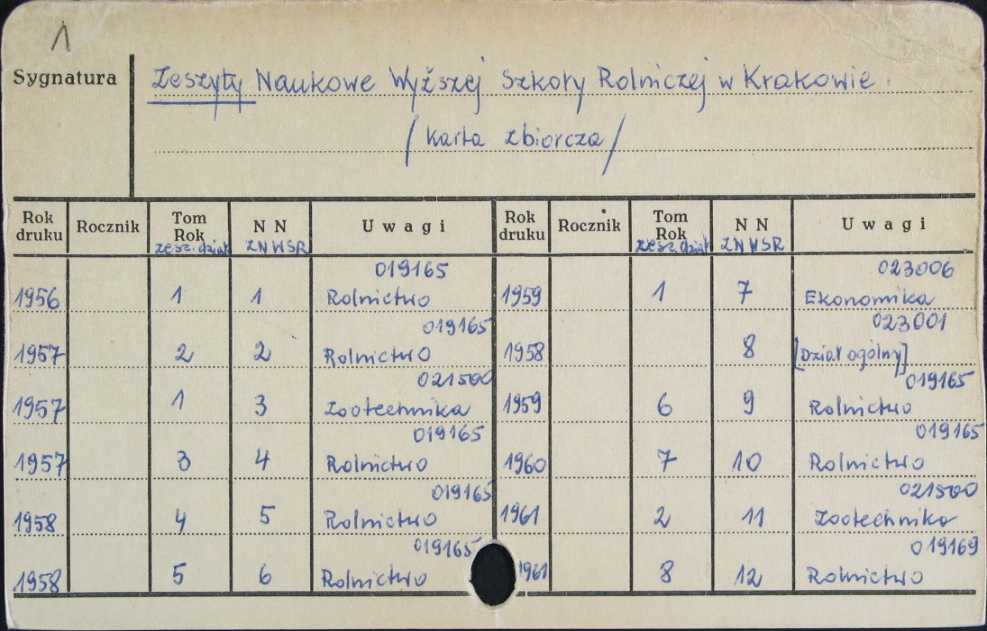 1
Sygnatura
Zeszyty Naukowe Wyższej Szkoły Rolniczej w Krakowie.
/Karta zbiorcza/
Rok druku | Rocznik | Tom Rok zesz. dział | N N ZN WSR | Uwagi | Rok druku | Rocznik | Tom Rok zesz. dział | N N ZN WSR | Uwagi
019165 | 023006
1956 | 1 | 1 | Rolnictwo | 1959 | 1 | 7 | Ekonomika
019165 | 023001
1957 | 2 | 2 | Rolnictwo | 1958 | 8 | [Dział ogólny]
021500 | 019165
1957 | 1 | 3 | Zootechnika | 1959 | 6 | 9 | Rolnictwo
019165 | 019165
1957 | 3 | 4 | Rolnictwo | 1960 | 7 | 10 | Rolnictwo
019165 | 021500
1958 | 4 | 5 | Rolnictwo | 1961 | 2 | 11 | Zootechnika
019165 | 019169
1958 | 5 | 6 | Rolnictwo | 1961 | 8 | 12 | Rolnictwo